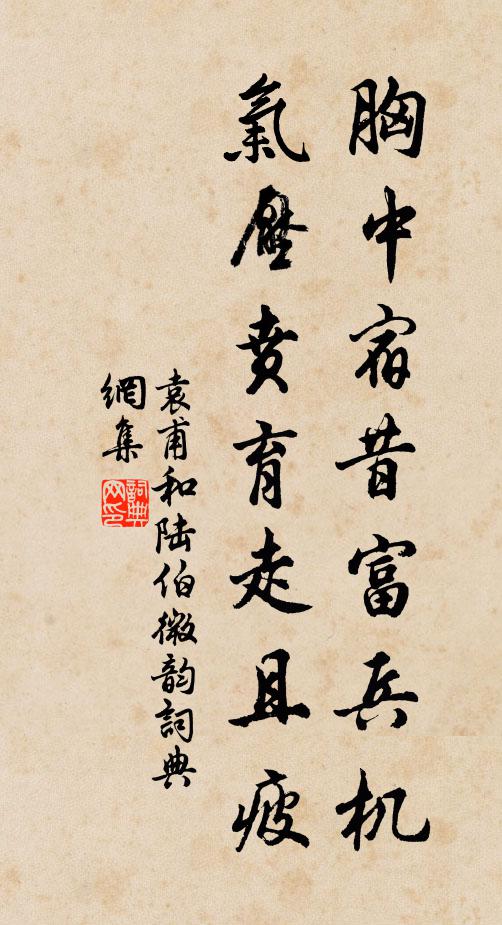 胸中宿昔富兵机
氣壓賁育走且疲
袁甫和陆伯微韵詞典
網集
詞典
网印